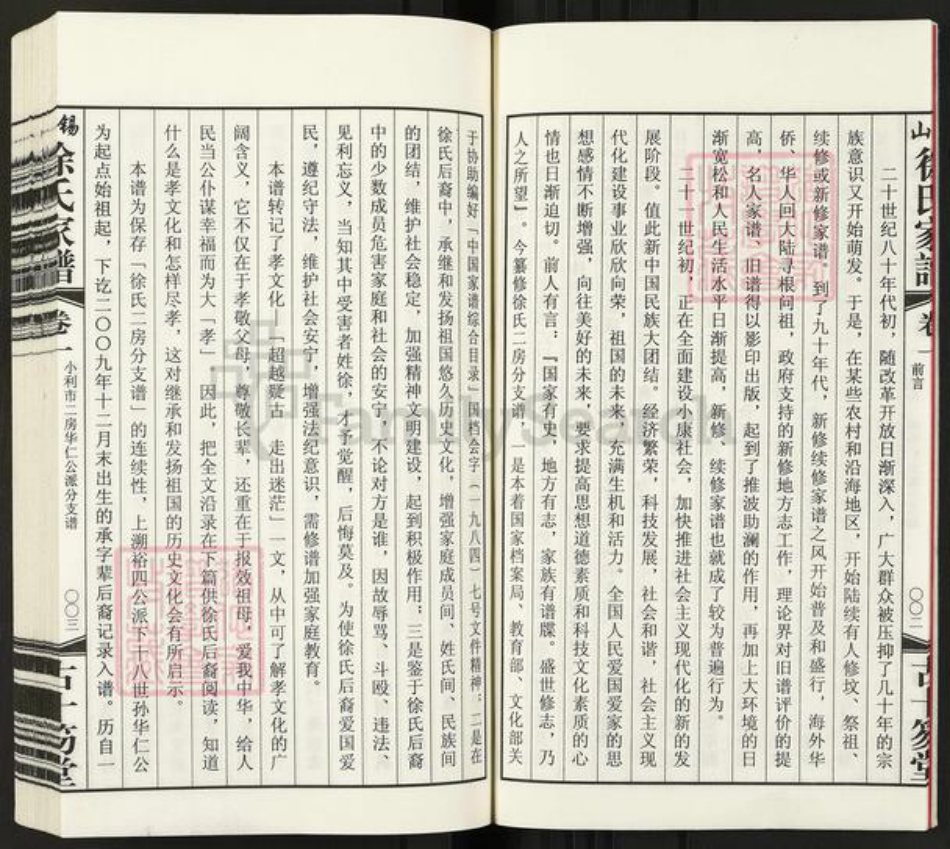 山徐氏家譜
卷一
前言
〇〇二
二十世纪八十年代初，随改革开放日渐深入，广大群众被压抑了几十年的宗
族意识又开始萌发。于是，在某些农村和沿海地区，开始陆续有人修坟、祭祖、
续修或新修家谱，到了九十年代，新修续修家谱之风开始普及和盛行，海外华
侨、华人回大陆寻根问祖，政府支持的新修地方志工作，理论界对旧谱评价的提
高，名人家谱、旧谱得以影印出版，起到了推波助澜的作用，再加上大环境的日
渐宽松和人民生活水平日渐提高，新修、续修家谱也就成了较为普遍行为。
二十一世纪初，正在全面建设小康社会，加快推进社会主义现代化的新的发
展阶段。值此新中国民族大团结。经济繁荣，科技发展，社会和谐，社会主义现
代化建设事业欣欣向荣，祖国的未来，充满生机和活力。全国人民爱国爱家的思
想感情不断增强，向往美好的未来，要求提高思想道德素质和科技文化素质的心
情也日渐迫切。前人有言：『国家有史，地方有志，家族有谱牒。盛世修志，乃
人之所望』。今纂修徐氏二房分支谱，一是本着国家档案局、教育部、文化部关
于协助编好「中国家谱综合目录」国档会字（一九八四）七号文件精神；二是在
徐氏后裔中，承继和发扬祖国悠久历史文化，增强家庭成员间、姓氏间、民族间
的团结，维护社会稳定，加强精神文明建设，起到积极作用；三是鉴于徐氏后裔
中的少数成员危害家庭和社会的安宁，不论对方是谁，因故辱骂、斗殴、违法、
见利忘义，当知其中受害者姓徐，才予觉醒，后悔莫及。为使徐氏后裔爱国爱
民，遵纪守法，维护社会安宁，增强法纪意识，需修谱加强家庭教育。
本谱转记了孝文化—「超越疑古，走出迷茫」一文，从中可了解孝文化的广
阔含义，它不仅在于孝敬父母，尊敬长辈，还重在于报效祖母，爱我中华，给人
民当公仆谋幸福而为大「孝」。因此，把全文沿录在下篇供徐氏后裔阅读，知道
什么是孝文化和怎样尽孝，这对继承和发扬祖国的历史文化会有所启示。
本谱为保存「徐氏二房分支谱」的连续性，上溯裕四公派下十八世孙华仁公
为起点始祖起，下讫二〇〇九年十二月末出生的承字辈后裔记录入谱。历自一
锡
徐氏家譜
卷一
小利市二房华仁公派分支谱
〇〇三
FamilySearch